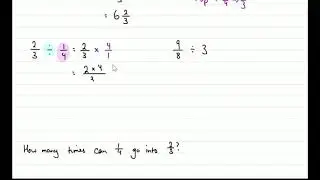 = 6 2/3
2/3 ÷ 1/4 = 2/3 × 4/1
= 2 × 4 / 3
9/8 ÷ 3
How many times can 1/4 go into 2/3?